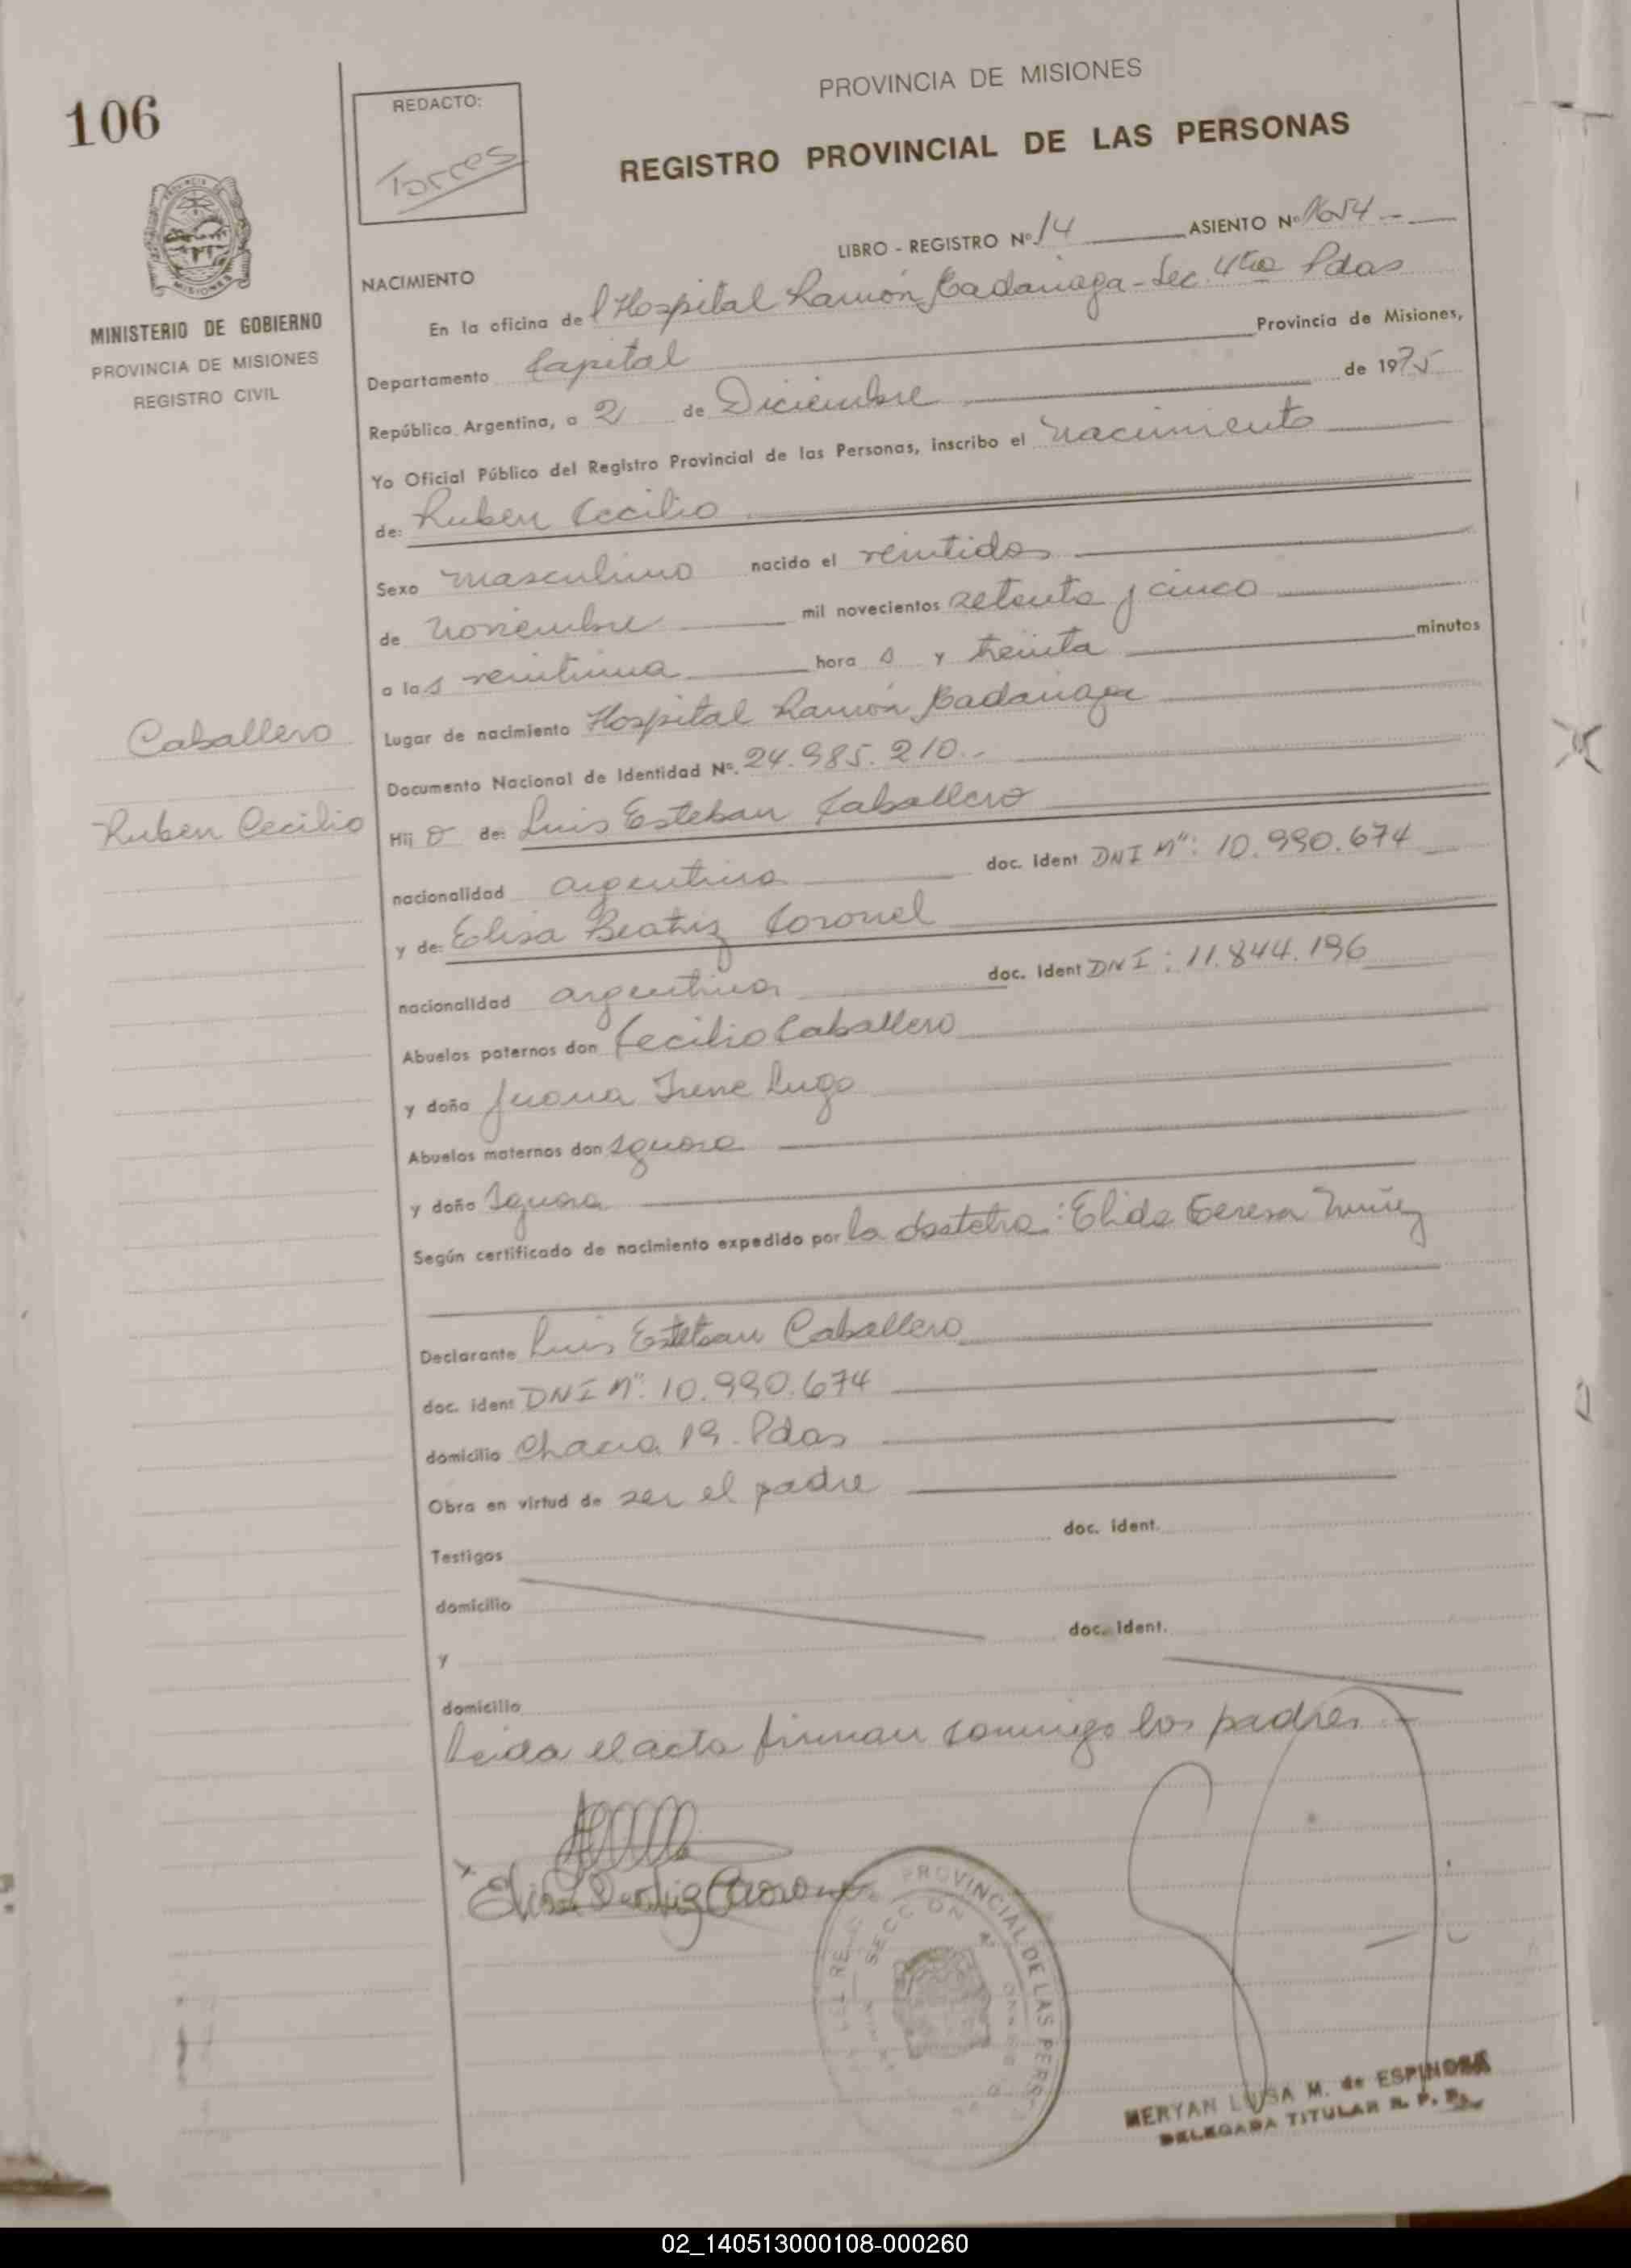 106
REDACTO:
Torres
PROVINCIA DE MISIONES
REGISTRO PROVINCIAL DE LAS PERSONAS
MINISTERIO DE GOBIERNO
PROVINCIA DE MISIONES
REGISTRO CIVIL
LIBRO - REGISTRO Nº 14 ASIENTO Nº 1654
NACIMIENTO
En la oficina del Hospital Ramón Madariaga - Sec. 4ta Pdas
Departamento Capital Provincia de Misiones,
República Argentina, a 2 de Diciembre de 1975
Yo Oficial Público del Registro Provincial de las Personas, inscribo el nacimiento
de: Ruben Cecilio
Sexo masculino nacido el veintidos
de noviembre mil novecientos setenta y cinco
a las veintiuna hora s y treinta minutos
Lugar de nacimiento Hospital Ramón Madariaga
Caballero
Documento Nacional de Identidad Nº. 24.985.210.-
Ruben Cecilio
Hij o de: Luis Esteban Caballero
nacionalidad argentina doc. ident DNI Nº: 10.990.674
y de: Elisa Beatriz Coronel
nacionalidad argentina doc. ident DNI: 11.844.196
Abuelos paternos don Cecilio Caballero
y doña Juana Irene Lugo
Abuelos maternos don Ignora
y doña Ignora
Según certificado de nacimiento expedido por la obstetra: Elida Teresa Nuñez
Declarante Luis Esteban Caballero
doc. ident DNI Nº: 10.990.674
domicilio Chacra 19. Pdas
Obra en virtud de ser el padre
Testigos doc. ident.
domicilio
y doc. ident.
domicilio
Leida el acta firman conmigo los padres.-
Elisa Beatriz Coronel
PROVINCIAL DE LAS PERS
SECCION
MERYAN LUISA M. de ESPINOSA
DELEGADA TITULAR R. P. P.
02_140513000108-000260